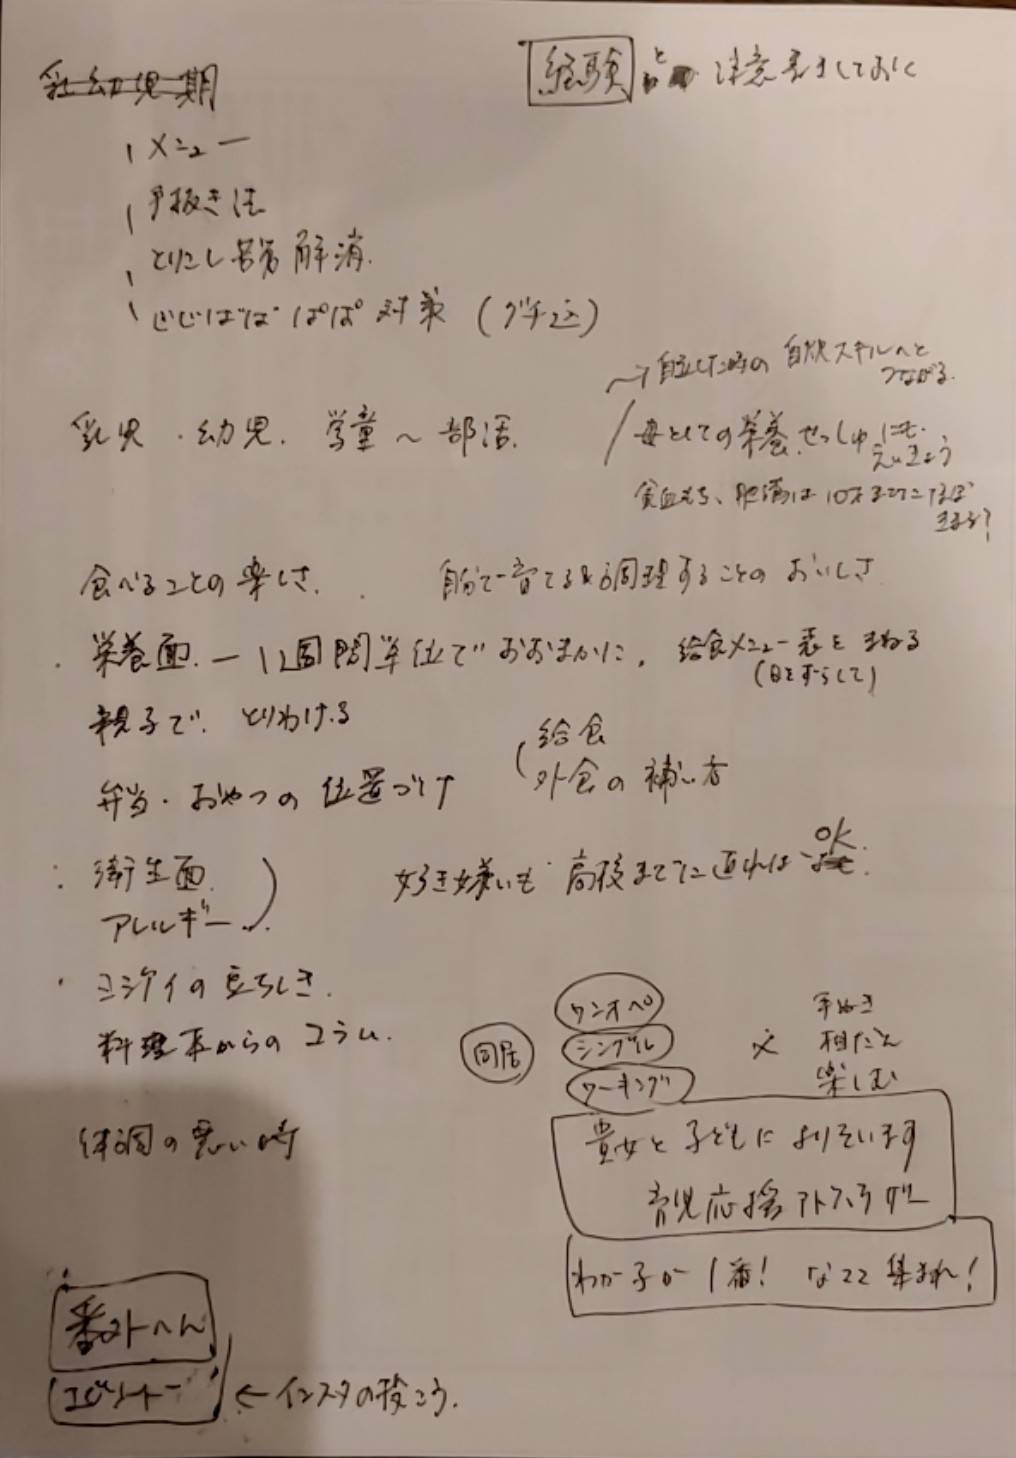 乳幼児期
経験と 注意書きしておく
メニュー
手抜き法
とりこし苦労解消.
じじばば ぱぱ 対策 (グチ込)
→ 自立した時の 自炊スキルへと
つながる.
乳児・幼児. 学童〜部活.
母としての栄養せっしゅにも
えいきょう
貧血もち、肥満は10才まで
食べることの楽しさ.
自分で育てる&調理することの おいしさ
・栄養面. 一 1週間単位で おおまかに. 給食メニュー表をまねる
(日をずらして)
親子で. とりわける
弁当・おやつの 位置づけ
給食
外食の補い方
衛生面.
アレルギー
好き嫌いも 高校までに直れば OK.
・ヨシケイの立ちしき.
料理本からの コラム.
体調の悪い時
同居
ワンオペ
シンプル
ワーキング
×
手ぬき
相だん
楽しむ
貴女と子どもによりそいます
育児応援アドバイザー
わが子が1番! なここ集まれ!
番外へん
エピソード
← インスタの投こう.